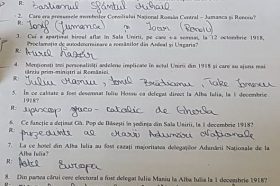 R: Bastionul Sfântul Mihail
2. Care erau prenumele membrilor Consiliului Național Român Central - Jumanca și Renoiu?
R: Iosif (Jumanca) și Ioan (Renoiu)
3. Cui a aparținut biroul aflat în Sala Unirii, pe care s-a semnat, la 12 octombrie 1918,
Proclamație de autodeterminare a românilor din Ardeal și Ungaria?
R: Aurel Lazăr
4. Menționați trei personalități ardelene implicate în actul Unirii din 1918 și care au ajuns mai
târziu prim-miniștri ai României.
R: Iuliu Maniu, Ionel Brătianu, Take Ionescu
5. În ce calitate a fost desemnat Iuliu Hossu ca delegat direct la Alba Iulia, la 1 decembrie
1918?
R: episcop greco-catolic de Gherla
6. Ce funcție a deținut Gh. Pop de Băsești în ședința din Sala Unirii, la 1 decembrie 1918?
R: președinte al Marii Adunări Naționale
7. La ce hotel din Alba Iulia au fost cazați majoritatea delegaților Adunării Naționale de la
Alba Iulia?
R: Hotel Europa
8. Din partea cărui cerc electoral a fost delegat Iuliu Maniu la Alba Iulia la 1 decembrie 1918?
R: